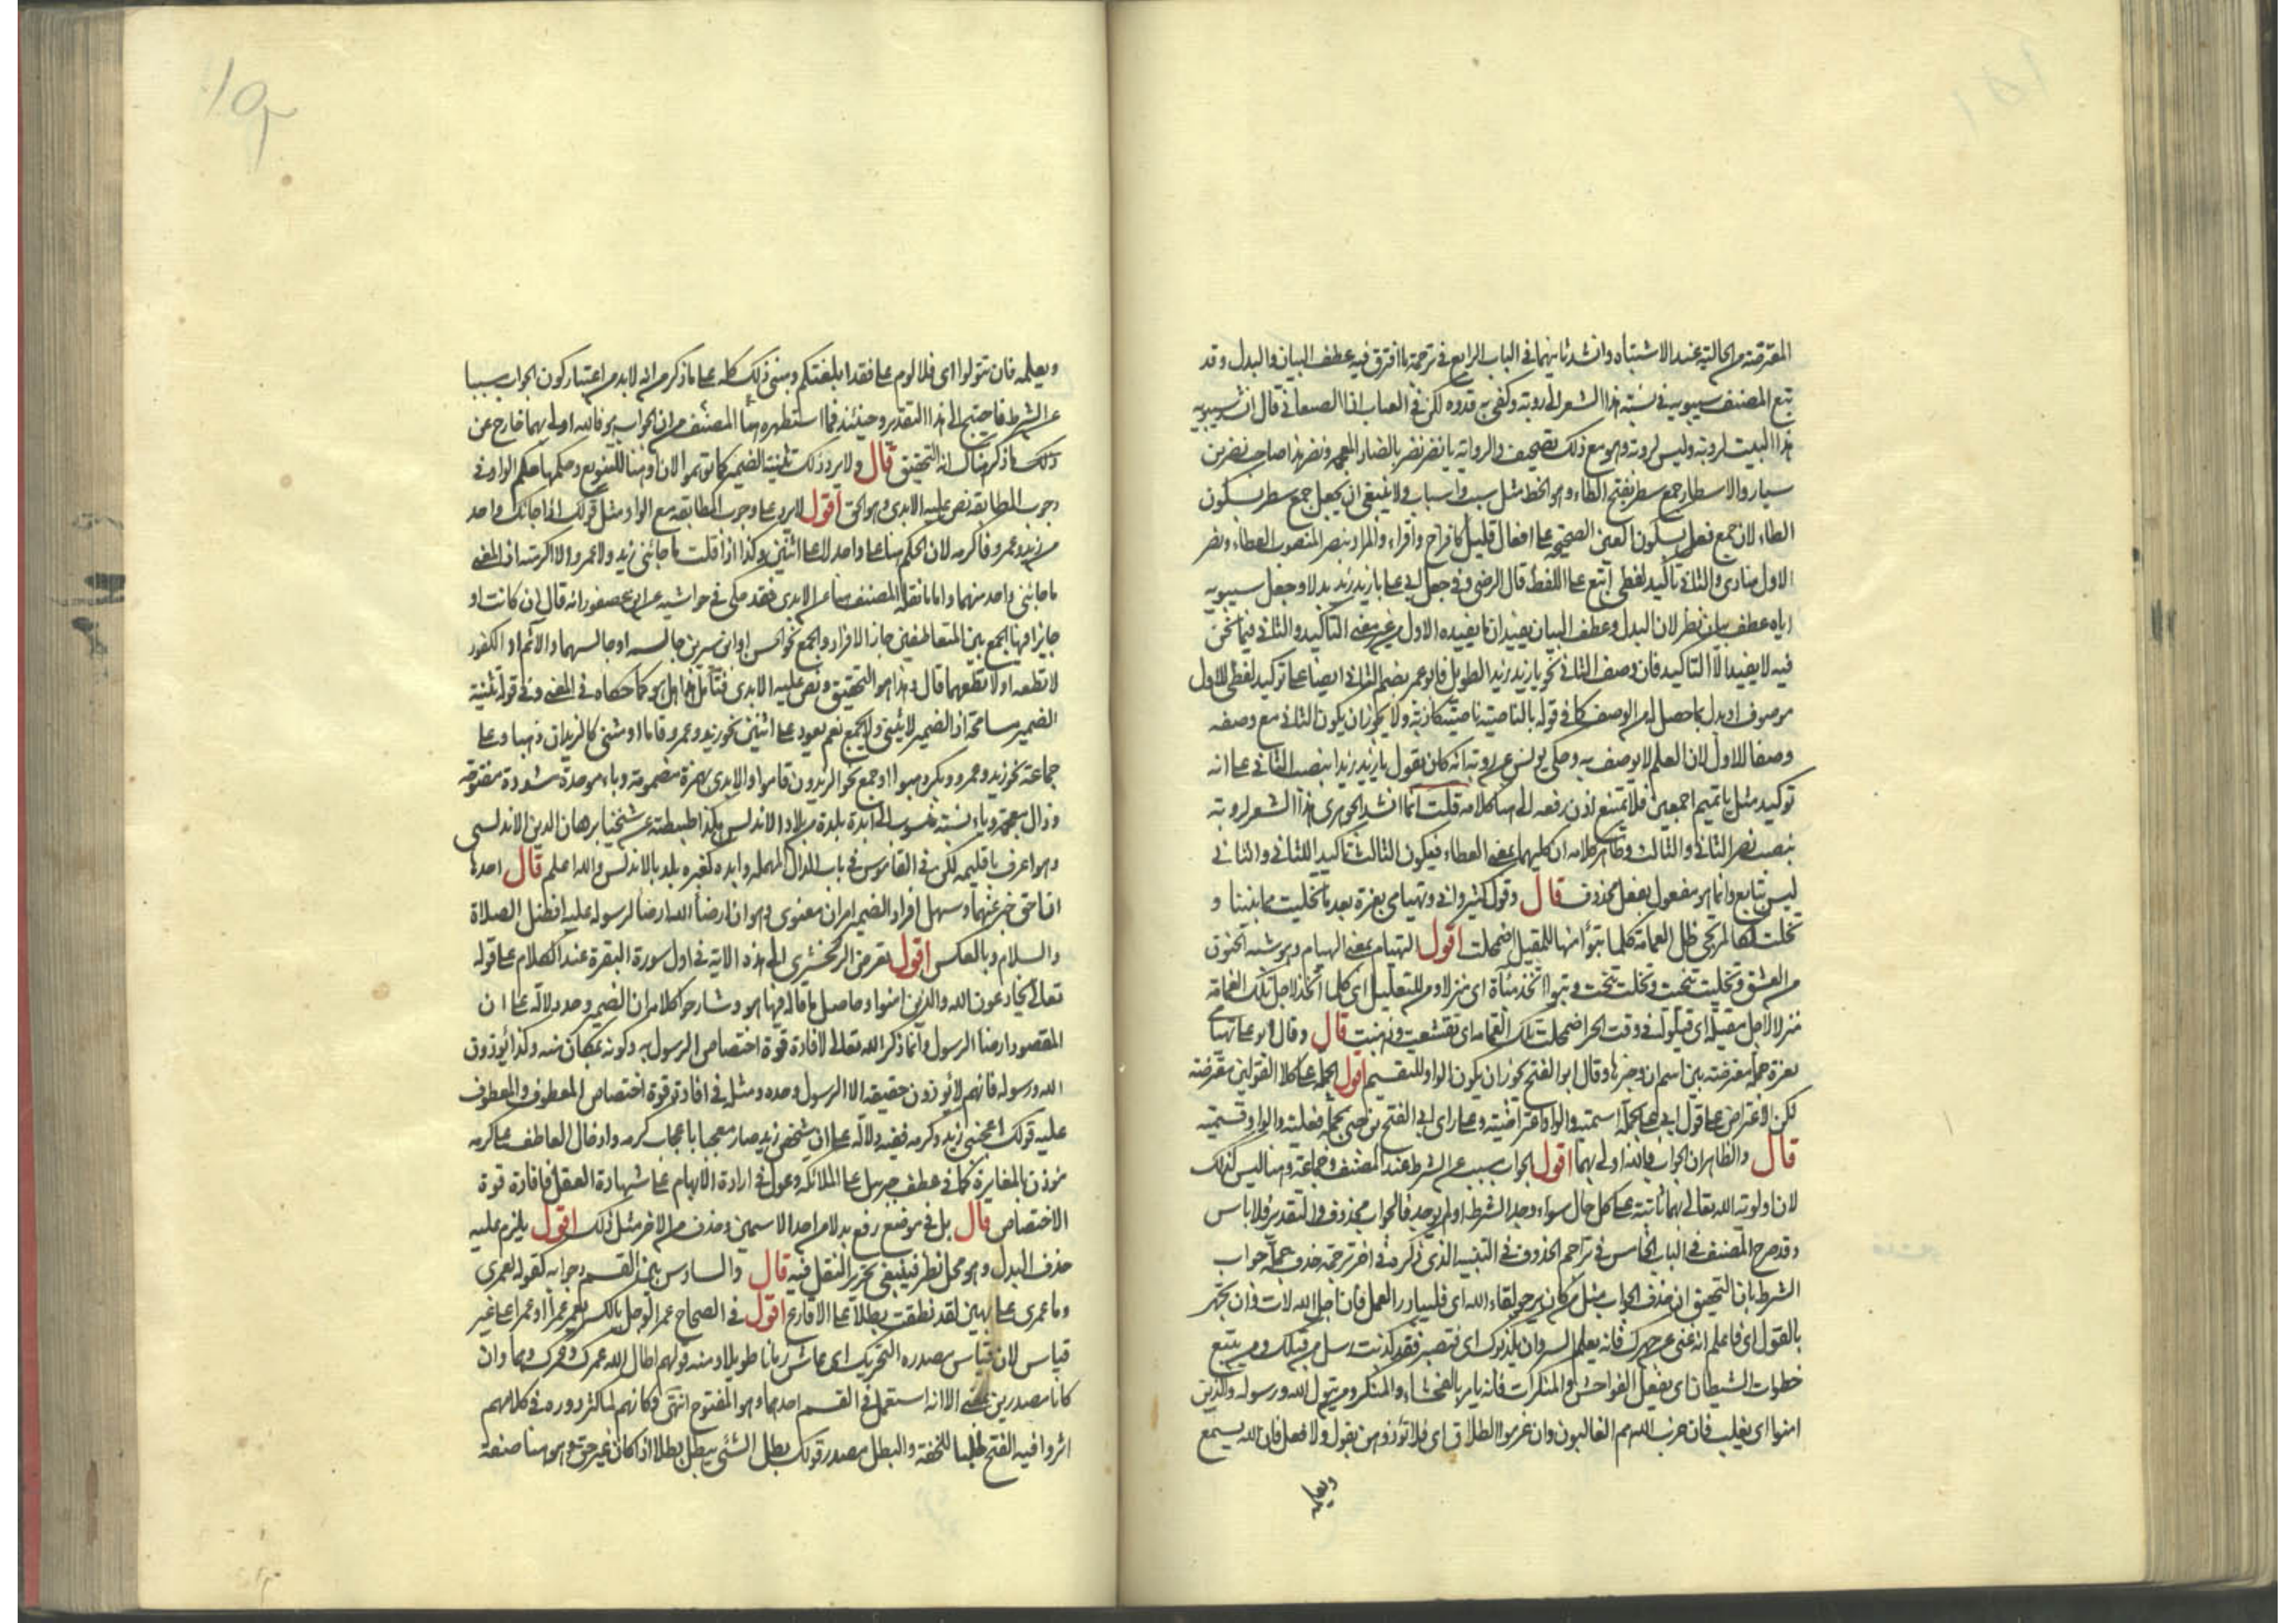 المعترضة من الحالية عند الاشتباه وانشد ثانيهما فى الباب الرابع فى ترجمة ما افترق فيه عطف البيان والبدل وقد
تبع المصنف سيبويه فى نسبة هذا الشعر الى روبة وكفى به قدوه لكن فى العباب ان الصنعانى قال انشد سيبويه
هذا البيت لروبة وليس لروبة وهو مع ذلك تصحيف والرواية يا نضر نضر بالضاد المعجمه ونضر هذا صاحب نصر بن
سيار والاسطار جمع سطر بفتح الطاء وهو الخط مثل سبب واسباب ولا ينبغى ان يجعل جمع سطر بسكون
الطاء لان جمع فعل بسكون العين الصحيحه على افعال قليل كافراخ واقراء والمراد بنصر المنصوب العطاء ونصر
الاول منادى والثانى تاكيد لفظى اتبع على اللفظ قال الرضى وفى جعل ابى على يا زيد زيد بدلا وجعل سيبويه
اياه عطف بيان نظر لان البدل وعطف البيان يفيدان ما يفيده الاول من غير معنى التاكيد والثانى فيما نحن
فيه لا يفيد الا التاكيد فان وصف الثانى نحو يا زيد زيد الطويل فابو عمر يضم الثانى ايضا على توكيد لفظى للاول
موصوف او بدل لما حصل له من الوصف كما فى قوله بالناصية ناصية كاذبة ولا يجوز ان يكون الثانى مع وصفه
وصفا للاول لان العلم لا يوصف به وحكى يونس عن روبة انه كان يقول يا زيد زيدا بنصب الثانى على انه
توكيد مثل يا تميم اجمعين فلا يمتنع اذن رفعه الى هنا كلامه قلت انما انشد الجوهرى هذا الشعر لروبة
بنصب نصر الثانى والثالث وظاهر كلامه ان كليهما بمعنى العطاء فيكون الثالث تاكيدا للثانى والثانى
ليس بتابع وانما هو مفعول بفعل محذوف قال وقول كثير وانى وتهيامى بعزة بعد ما تخليت مما بيننا و
تخلت لكالمرتجى ظل الغمامة كلما تبوأ منها للمقيل اضمحلت اقول التهيام بمعنى الهيام وهو شبه الجنون
من العشق وتخليت تنحيت وتخلت تنحت وتبوأ اتخذ مبأة اى منزلا ومن للتعليل اى كلما اتخذ لاجل تلك الغمامة
منزلا لاجل مقيل اى قيلولة فى وقت الحر اضمحلت تلك الغمامه اى تقشعت وذهبت قال وقال ابو على تهيامى
بعزة جملة معترضة بين اسم ان وخبرها وقال ابو الفتح يجوز ان يكون الواو للقسم اقول الجمله على كلا القولين معترضة
لكن الاعتراض على قول ابى على بجملة اسمية والواو اعتراضية وعلى راى ابى الفتح بن جنى بجملة فعلية والواو قسمية
قال والظاهر ان الجواب فالله اولى بهما اقول الجواب مسبب عن الشرط عند المصنف وجماعة وهنا ليس كذلك
لان اولوية الله تعالى بهما ثابتة على كل حال سواء وجد الشرط او لم يوجد فالجواب محذوف والتقدير فلا باس
وقد صرح المصنف فى الباب الخامس فى تراجم الحذوف فى التنبيه الذى ذكره فى اخر ترجمة حذف جملة جواب
الشرط بان التحقيق ان حذف الجواب مثل من كان يرجو لقاء الله اى فليبادر العمل فان اجل الله لات وان تجهر
بالقول اى فاعلم انه غنى عن جهرك فانه يعلم السر وان يكذبوك اى فتصبر فقد كذبت رسل من قبلك ومن يتبع
خطوات الشيطان اى يفعل الفواحش والمنكرات فانه يامر بالفحشاء والمنكر ومن يتول الله ورسوله والذين
امنوا اى يغلب فان حزب الله هم الغالبون وان عزموا الطلاق اى فلا تؤذوهن بقول ولا فعل فان الله يسمع
ويعلمه
ويعلمه فان تتولوا اى فلا لوم على فقد ابلغتكم وبنى ذلك كله على ما ذكر من انه لا بد من اعتبار كون الجواب مسببا
عن الشرط فاحتيج الى هذا التقدير وحينئذ فما استظهره هنا المصنف من ان الجواب هو فالله اولى بهما خارج عن
ذلك ما ذكر هناك انه التحقيق قال ولا يرد ذلك تثنية الضمير كما توهموا لان او هنا للتنويع وحكمها حكم الواو فى
وجوب المطابقة نص عليه الابدى وهو الحق اقول لا يرد على وجوب المطابقة مع الواو مثل قولك اذا جائك واحد
من زيد وعمرو فاكرمه لان الحكم هنا على واحد لا على اثنين وكذا اذا قلت ما جائنى زيد ولا عمرو الا اكرمته اذ المعنى
ما جائنى واحد منهما واما ما نقله المصنف هنا عن الابدى فقد حكى فى حواشيه عن ابن عصفور انه قال ان كانت او
جايزا فيها الجمع بين المتعاطفين جاز الافراد والجمع نحو الحسن او ابن سيرين جالسه او جالسهما والاثم او الكفور
لا تطعه او لا تطعهما قال وهذا هو التحقيق ونص عليه الابدى فتامل هذا هل هو كما حكاه فى المغنى وفى قوله تثنية
الضمير مسامحة اذ الضمير لا يثنى ولا يجمع نعم يعود على اثنين نحو زيد وعمرو قاما او مثنى كالزيدان ذهبا وعلى
جماعة نحو زيد وعمرو وبكر ذهبوا او جمع نحو الزيدون قاموا والابدى بهمزة مضمومة وباء موحدة مشددة مفتوحة
وذال معجمة وياء نسبة منسوب الى ابذة بلدة من بلاد الاندلس هكذا ضبطته عن شيخنا برهان الدين الاندلسى
وهو اعرف باقليمه لكن فى القاموس فى باب الدال المهمله وابده كقبره بلد بالاندلس والله اعلم قال احدها
ان احق خبر عنهما وسهل افراد الضمير امران معنوى وهو ان ارضاء الله ارضاء لرسوله عليه افضل الصلاة
والسلام وبالعكس اقول تعرض الزمخشرى الى هذه الاية فى اول سورة البقرة عند الكلام على قوله
تعالى يخادعون الله والذين امنوا وحاصل ما قاله فيها هو وشارحو كلامه ان الضمير وحد دلالة على ان
المقصود ارضاء الرسول وانما ذكر الله تعالى لافادة قوة اختصاص الرسول به وكونه بمكان منه وكذا يؤذون
الله ورسوله فانهم لا يؤذون حقيقة الا الرسول وحده ومثله فى افادته قوة اختصاص المعطوف والمعطوف
عليه قولك اعجبنى زيد وكرمه ففيه دلالة على ان شخص زيد صار معجبا باعجاب كرمه وادخال العاطف على كرمه
مؤذن بالمغايرة كما فى عطف جبريل على الملائكه وعول فى ارادة الابهام على شهادة العقل فافادة قوة
الاختصاص قال بل فى موضع رفع بدلا من احد الاسمين وحذف من الاخر مثل ذلك اقول يلزم عليه
حذف البدل وهو محل نظر فينبغى تحرير النقل فيه قال والسادس بين القسم وجوابه كقوله لعمرى
وما عمرى على بهين لقد نطقت بطلا على الاقارع اقول فى الصحاح عمر الرجل بالكسر يعمر عمرا او عمرا على غير
قياس لان قياس مصدره التحريك اى عاش زمانا طويلا ومنه قولهم اطال الله عمرك وعمرك وهما وان
كانا مصدرين بمعنى الا انه استعمل فى القسم احدهما وهو المفتوح انتهى وكانهم لما كثر دوره فى كلامهم
اثروا فيه الفتح طلبا للخفة والبطل مصدر قولك بطل الشئ يبطل بطلا اذا كان غير حق وهو هنا صفة